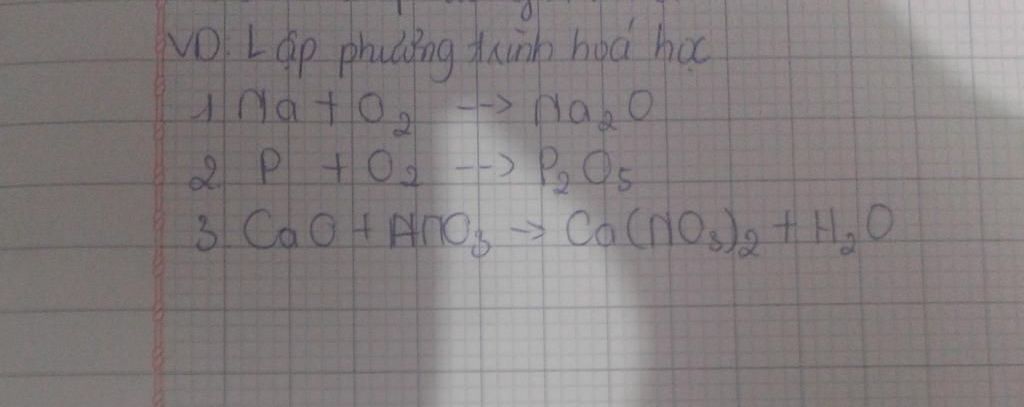 VD: Lập phương trình hoá học
1 Na + O2 --> Na2O
2. P + O2 --> P2O5
3. CaO + HNO3 -> Ca(NO3)2 + H2O